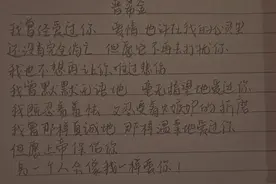 普希金
我曾经爱过你 爱情 也许在我的心灵里
还没有完全消亡 但愿它不再去打扰你
我也不想再让你难过悲伤
我曾默默无语地 毫无指望地爱过你
我既忍着羞怯 又忍受着嫉妒的折磨
我曾那样真诚地 那样温柔地爱过你
但愿上帝保佑你
另一个人会像我一样爱你！